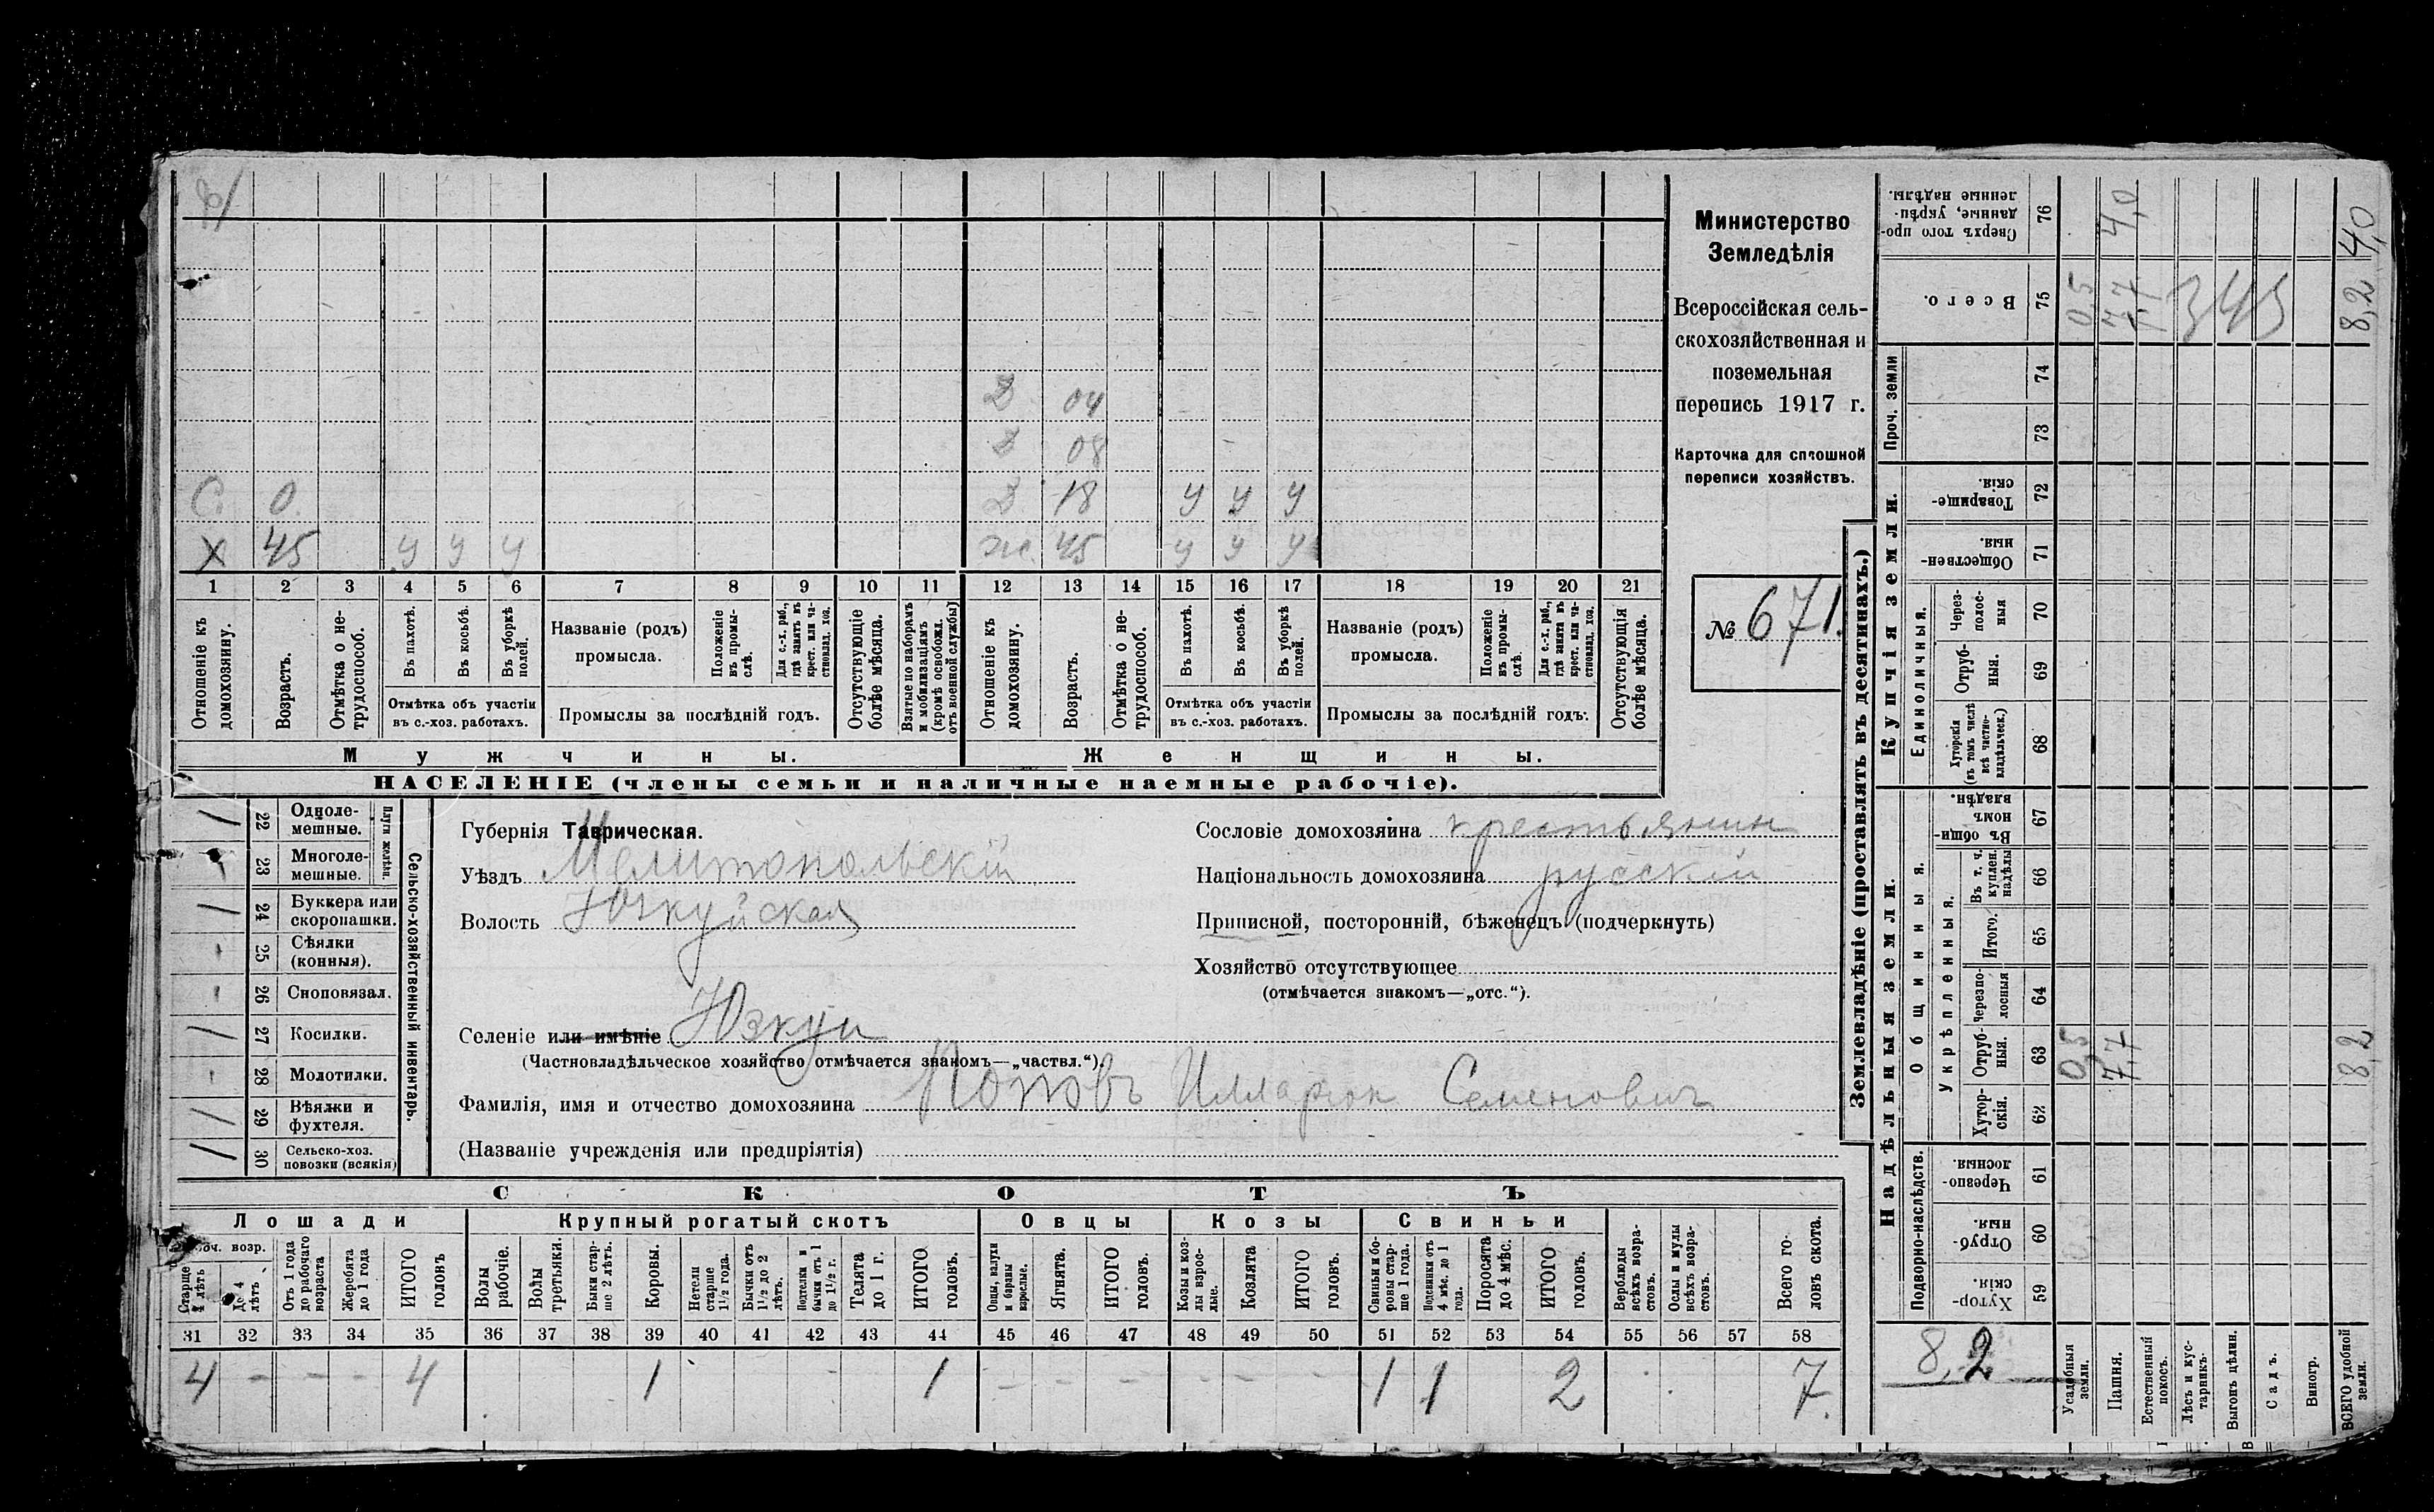 Министерство
Земледѣлія
Всероссійская сель-
скохозяйственная и
поземельная
перепись 1917 г.
Карточка для сплошной
переписи хозяйствъ.
№ 671.
Д 04
Д 08
С. 0. Д 18 У У У
Х 45 У У У Ж. 45 У У У
1 2 3 4 5 6 7 8 9 10 11 12 13 14 15 16 17 18 19 20 21
Отношеніе къ домохозяину.
Возрастъ.
Отмѣтка о не-трудоспособ.
Въ пахотѣ.
Въ косьбѣ.
Въ уборкѣ полей.
Отмѣтка объ участіи
въ с.-хоз. работахъ.
Названіе (родъ)
промысла.
Положеніе въ промы-слѣ.
Для с.-х. раб., гдѣ занятъ въ крест. или ча-стновлад. хоз.
Промыслы за послѣдній годъ.
Отсутствующіе болѣе мѣсяца.
Взятые по наборамъ и мобилизаціямъ (кромѣ освобожд. отъ военной службы)
Отношеніе къ домохозяину.
Возрастъ.
Отмѣтка о не-трудоспособ.
Въ пахотѣ.
Въ косьбѣ.
Въ уборкѣ полей.
Отмѣтка объ участіи
въ с.-хоз. работахъ.
Названіе (родъ)
промысла.
Положеніе въ промы-слѣ.
Для с.-х. раб., гдѣ занята въ крест. или ча-стновлад. хоз.
Промыслы за послѣдній годъ.
Отсутствующія болѣе мѣсяца.
Мужчины. Женщины.
НАСЕЛЕНІЕ (члены семьи и наличные наемные рабочіе).
Сельско-хозяйственный инвентарь.
Плуги желѣзн.
1 22 Одноле-мешные.
23 Многоле-мешные.
1 24 Буккера или скоропашки.
- 25 Сѣялки (конныя).
- 26 Сноповязал.
1 27 Косилки.
- 28 Молотилки.
1 29 Вѣялки и фухтеля.
1 30 Сельско-хоз. повозки (всякія)
Губернія Таврическая.
Уѣздъ Мелитопольскій
Волость Юзкуйская
Селеніе или имѣніе Юзкуи
(Частновладѣльческое хозяйство отмѣчается знакомъ—„частвл.“).
Фамилія, имя и отчество домохозяина Поповъ Илларіон Семенович
(Названіе учрежденія или предпріятія)
Сословіе домохозяина крестьянин
Національность домохозяина русскій
Приписной, посторонній, бѣженецъ (подчеркнуть)
Хозяйство отсутствующее
(отмѣчается знакомъ—„отс.“).
СКОТЪ
Лошади Крупный рогатый скотъ Овцы Козы Свиньи
Старше 4 лѣтъ
До 4 лѣтъ
Отъ 1 года до рабочаго возраста
Жеребята до 1 года
ИТОГО головъ
Волы рабочіе.
Волы третьяки.
Быки стар-ше 2 лѣтъ.
Коровы.
Нетели старше 1½ года.
Бычки отъ 1½ до 2 лѣтъ.
Подтелки и бычки отъ 1 до 1½ г.
Телята до 1 г.
ИТОГО головъ.
Овцы, валухи и бараны взрослые.
Ягнята.
ИТОГО головъ.
Козы и коз-лы взрос-лые.
Козлята
ИТОГО головъ.
Свиньи и бо-ровы стар-ше 1 года.
Подсвинки отъ 4 мѣс. до 1 года.
Поросята до 4 мѣс.
ИТОГО головъ.
Верблюды всѣхъ возра-стовъ.
Ослы и мулы всѣхъ возра-стовъ.
Всего го-ловъ скота.
31 32 33 34 35 36 37 38 39 40 41 42 43 44 45 46 47 48 49 50 51 52 53 54 55 56 57 58
4 - - - 4 1 1 - - - - - - 1 1 2 7.
Землевладѣніе (проставлять въ десятинахъ.)
Надѣльныя земли. Купчія земли. Проч. земли
Подворно-наслѣдств.
Общинныя.
Укрѣпленныя.
Единоличныя.
59 Хутор-скія.
60 Отруб-ныя.
61 Черезпо-лосныя.
62 Хутор-скія.
63 Отруб-ныя. 0,5 7,7 8,2
64 Черезпо-лосныя
65 Итого.
66 Въ т. ч. куплен. надѣлы
67 Въ общи-номъ владѣн.
68 Хуторскія (въ томъ числѣ всѣ частно-владѣльческ.)
69 Отруб-ныя.
70 Через-полос-ныя
71 Обществен-ныя.
72 Товарище-скія.
73
74
75 Всего. 0 5 7,7 343 8,2
76 Сверхъ того про-данные, укрѣп-ленные надѣлы. 4,0 4,0
8,2
Усадебныя земли.
Пашня.
Естественный покосъ.
Лѣсъ и кус-тарникъ.
Выгонъ цѣлин.
Садъ.
Виногр.
ВСЕГО удобной земли.